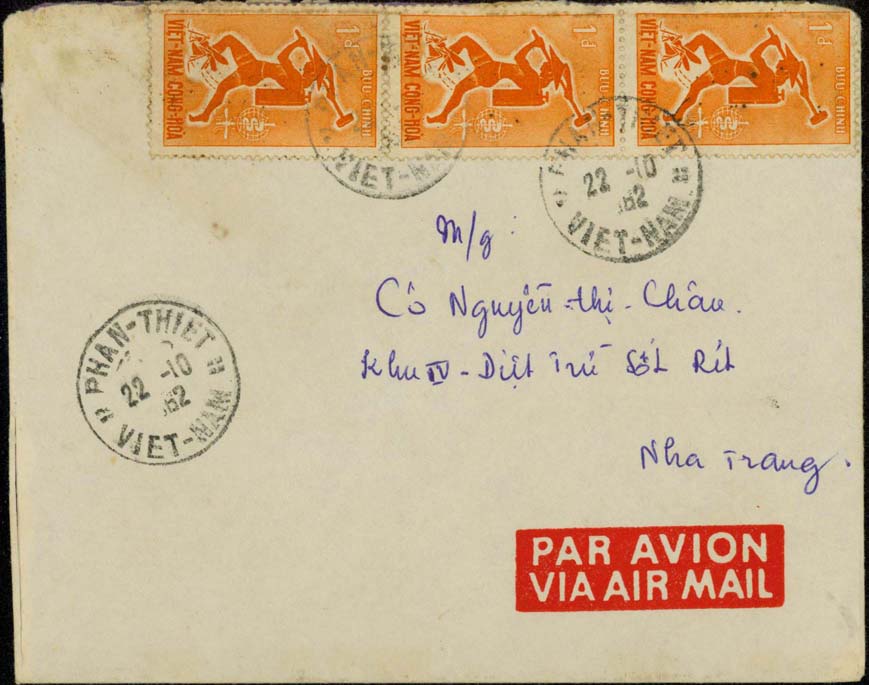 1đ
BƯU CHÍNH
VIỆT-NAM CỘNG-HÒA
1đ
BƯU CHÍNH
VIỆT-NAM CỘNG-HÒA
1đ
BƯU CHÍNH
VIỆT-NAM CỘNG-HÒA
VIET-NAM
PHAN-THIET
22 -10
62
VIET-NAM
M/g:
Cô Nguyễn-thị-Châu.
Khu IV - Diệt Trừ Sốt Rét
Nha Trang.
PHAN-THIET
22 -10
62
VIET-NAM
PAR AVION
VIA AIR MAIL